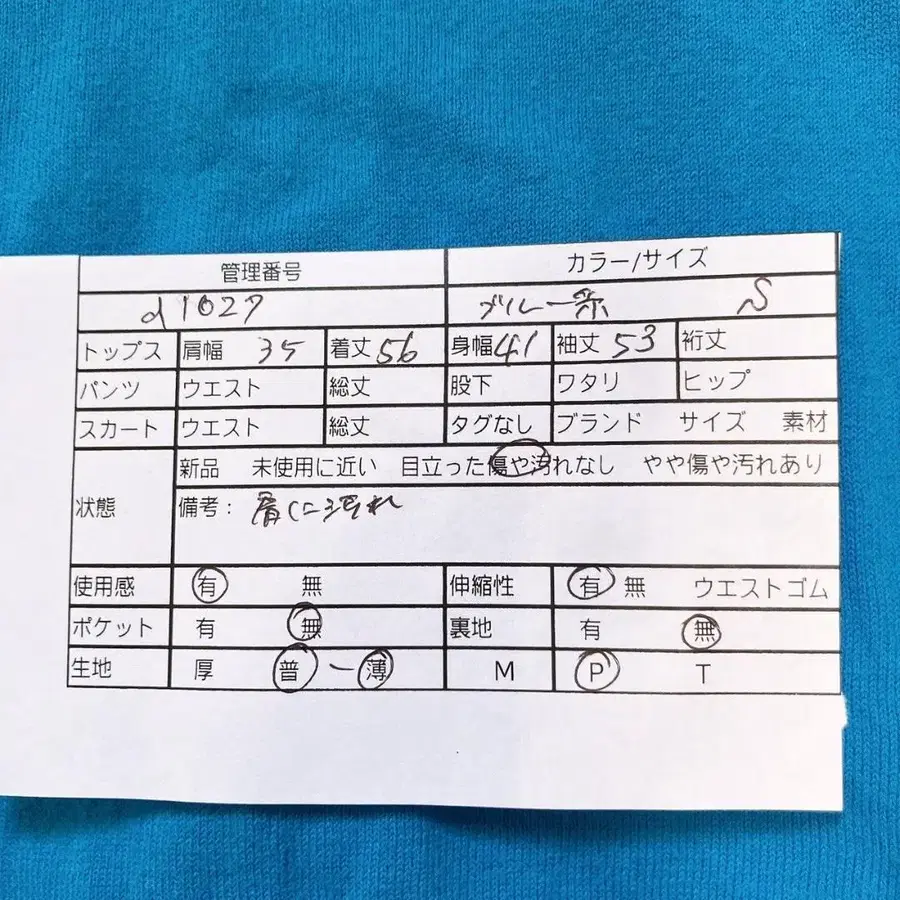 管理番号 カラー/サイズ
d1027 ブルー系 S
トップス 肩幅 35 着丈 56 身幅 41 袖丈 53 裄丈
パンツ ウエスト 総丈 股下 ワタリ ヒップ
スカート ウエスト 総丈 タグなし ブランド サイズ 素材
状態 新品 未使用に近い 目立った傷や汚れなし やや傷や汚れあり
備考: 肩に汚れ
使用感 有 無 伸縮性 有 無 ウエストゴム
ポケット 有 無 裏地 有 無
生地 厚 普 ー 薄 M P T